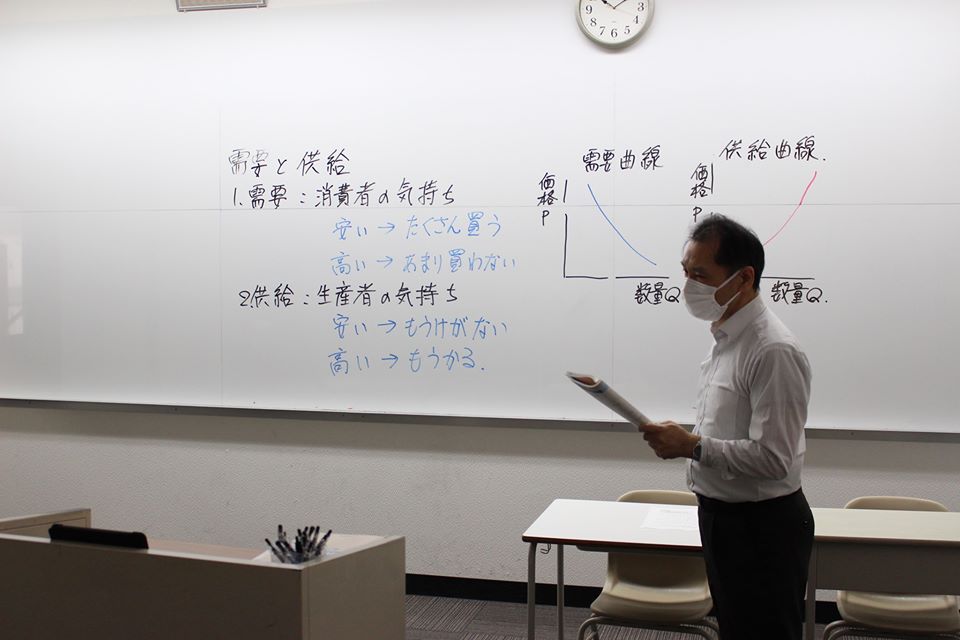 需要と供給
1.需要:消費者の気持ち
安い→たくさん買う
高い→あまり買わない
2.供給:生産者の気持ち
安い→もうけがない
高い→もうかる.
需要曲線
価格
P
数量Q
供給曲線.
価格
P
数量Q.
10 9 8 7 6 5 4 3